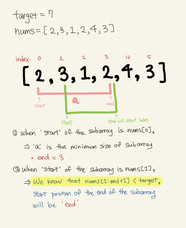 target = 7
nums = [2,3,1,2,4,3]
index: 0 1 2 3 4 5
[2,3,1,2,4,3]
start
end
start
end will start here
① When 'start' of the subarray is nums[0],
⇒ 'a' is the minimum size of subarray
• end = 3
② When 'start' of the subarray is nums[1],
⇒ We know that nums[1:end+1] < target,
start position of the end of the subarray
will be 'end'